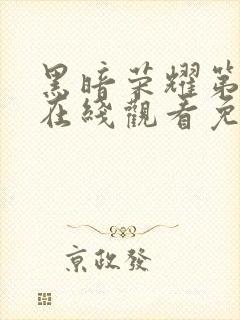 黑暗荣耀第
在线觀看免
京政發